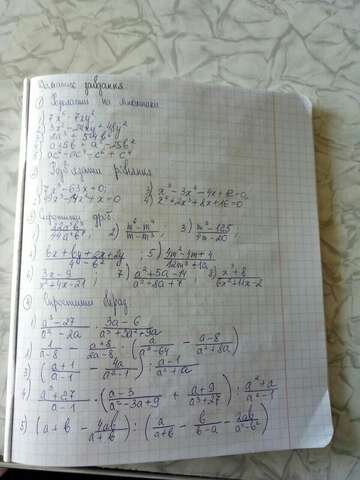 Домашнє завдання
① Розкласти на множники
1) 7x² - 7zy²
2) 3x² - 24xy + 48y²
3) 2a³ + 54b³
4) a + 5b + a² - 25b²
5) ac⁴ - ac² - c⁶ + c⁴
② Розв'язати рівняння
1) 7x³ - 63x = 0;
3) x³ - 3x² - 4x + 12 = 0;
2) 49x³ - 14x² + x = 0
4) x³ + 2x² + 8x + 16 = 0
③ Спростити дріб
1) 22a³b² / 44a²b³ ; 2) m⁶ - m⁴ / m - m³ ; 3) m³ - 125 / 4m - 20 ;
4) 6x + 6y + zx + zy / - b² ; 5) 4m² - 4m + 1 / 12m³ + 12
6) 3x - 9 / x² + 4x - 21 ; 7) a² + 5a - 14 / a² + 8a + 7 ; 8) x³ + 8 / 6x² + 11x - 2
④ Спростити вираз
1) a³ - 27 / a² - 2a · 3a - 6 / a³ + 3a² + 9a
2) 1 / a - 8 - a + 8 / 2a - 8 · ( a / a² - 64 - a - 8 / a² + 8a )
3) ( a + 1 / a - 1 - 4a / a² - 1 ) : a - 1 / a² + a
4) a³ + 27 / a - 1 · ( a - 3 / a² - 3a + 9 + a + 9 / a³ + 27 ) : a² + a / a² - 1
5) ( a + b - 4ab / a + b ) : ( a / a + b - b / b - a - 2ab / a² - b² )